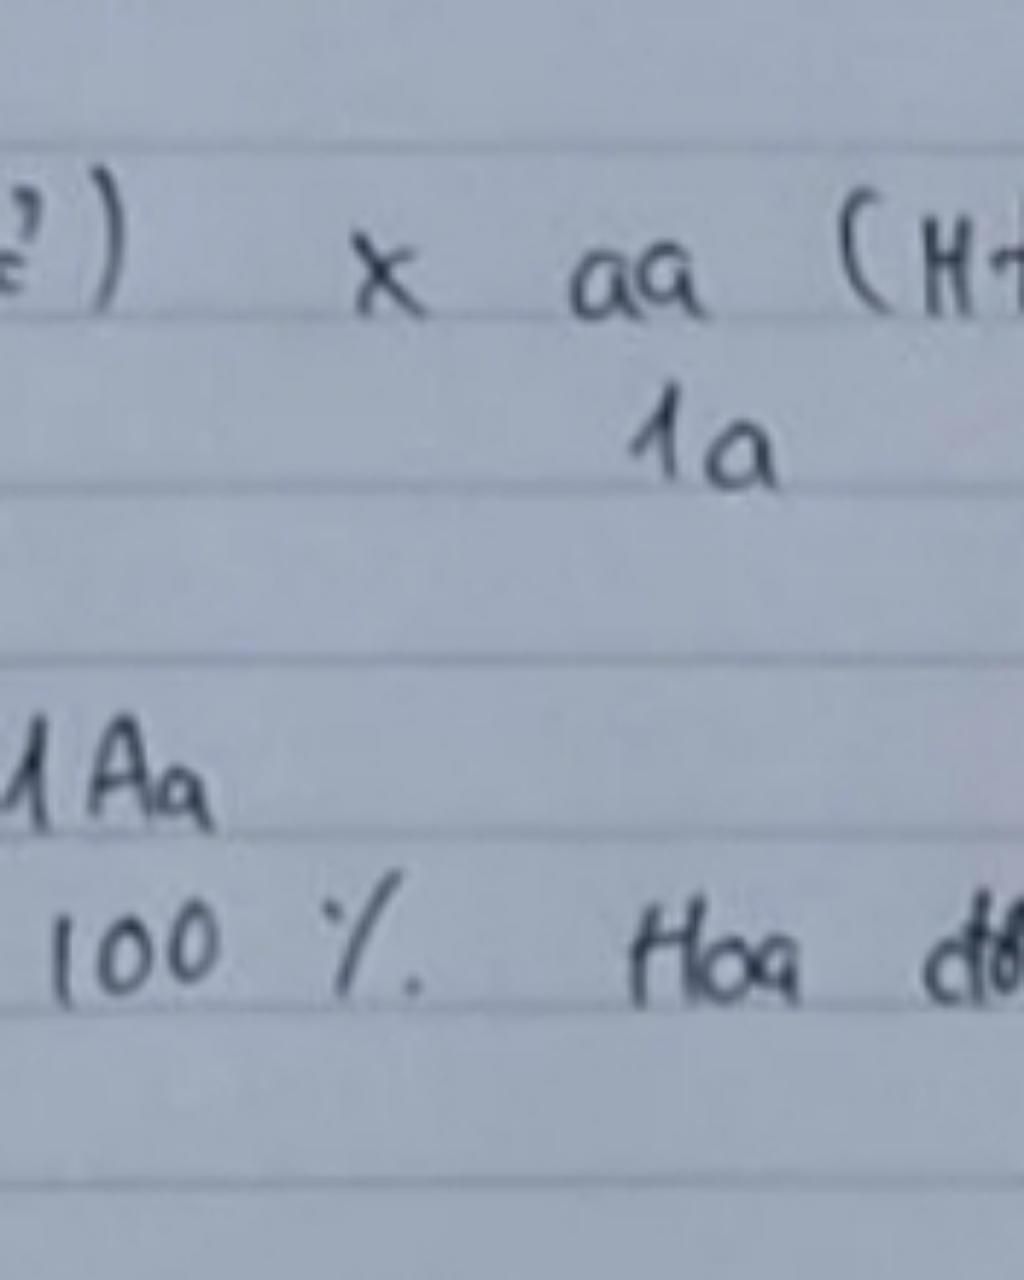 ) x aa (H
1a
1Aa
100 % Hoa